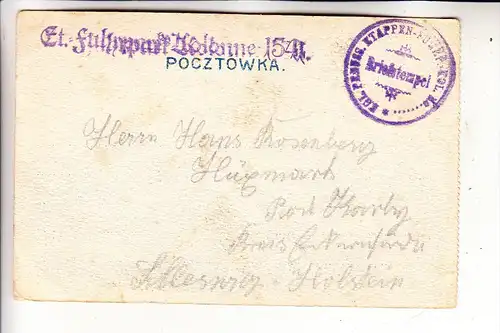 Et. Fuhrpark Kolonne 154.
POCZTÓWKA.
KGL. PREUSS. ETAPPEN- KOL. No.
Briefstempel
Herrn Hans Rosenberg
Hüxmark
Post Karby
Kreis Eckernförde
Schleswig-Holstein